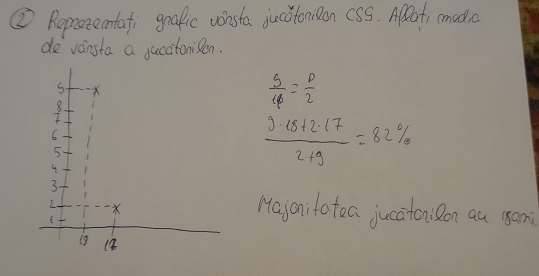 ② Reprezentați grafic vârsta jucătorilor CSS. Aflați media
de vârsta a jucătorilor.
9
8
7
6
5
4
3
2
1
17
9/18 = p/2
(9·18+2·17)/(2+9) = 82%
Majoritatea jucătorilor au